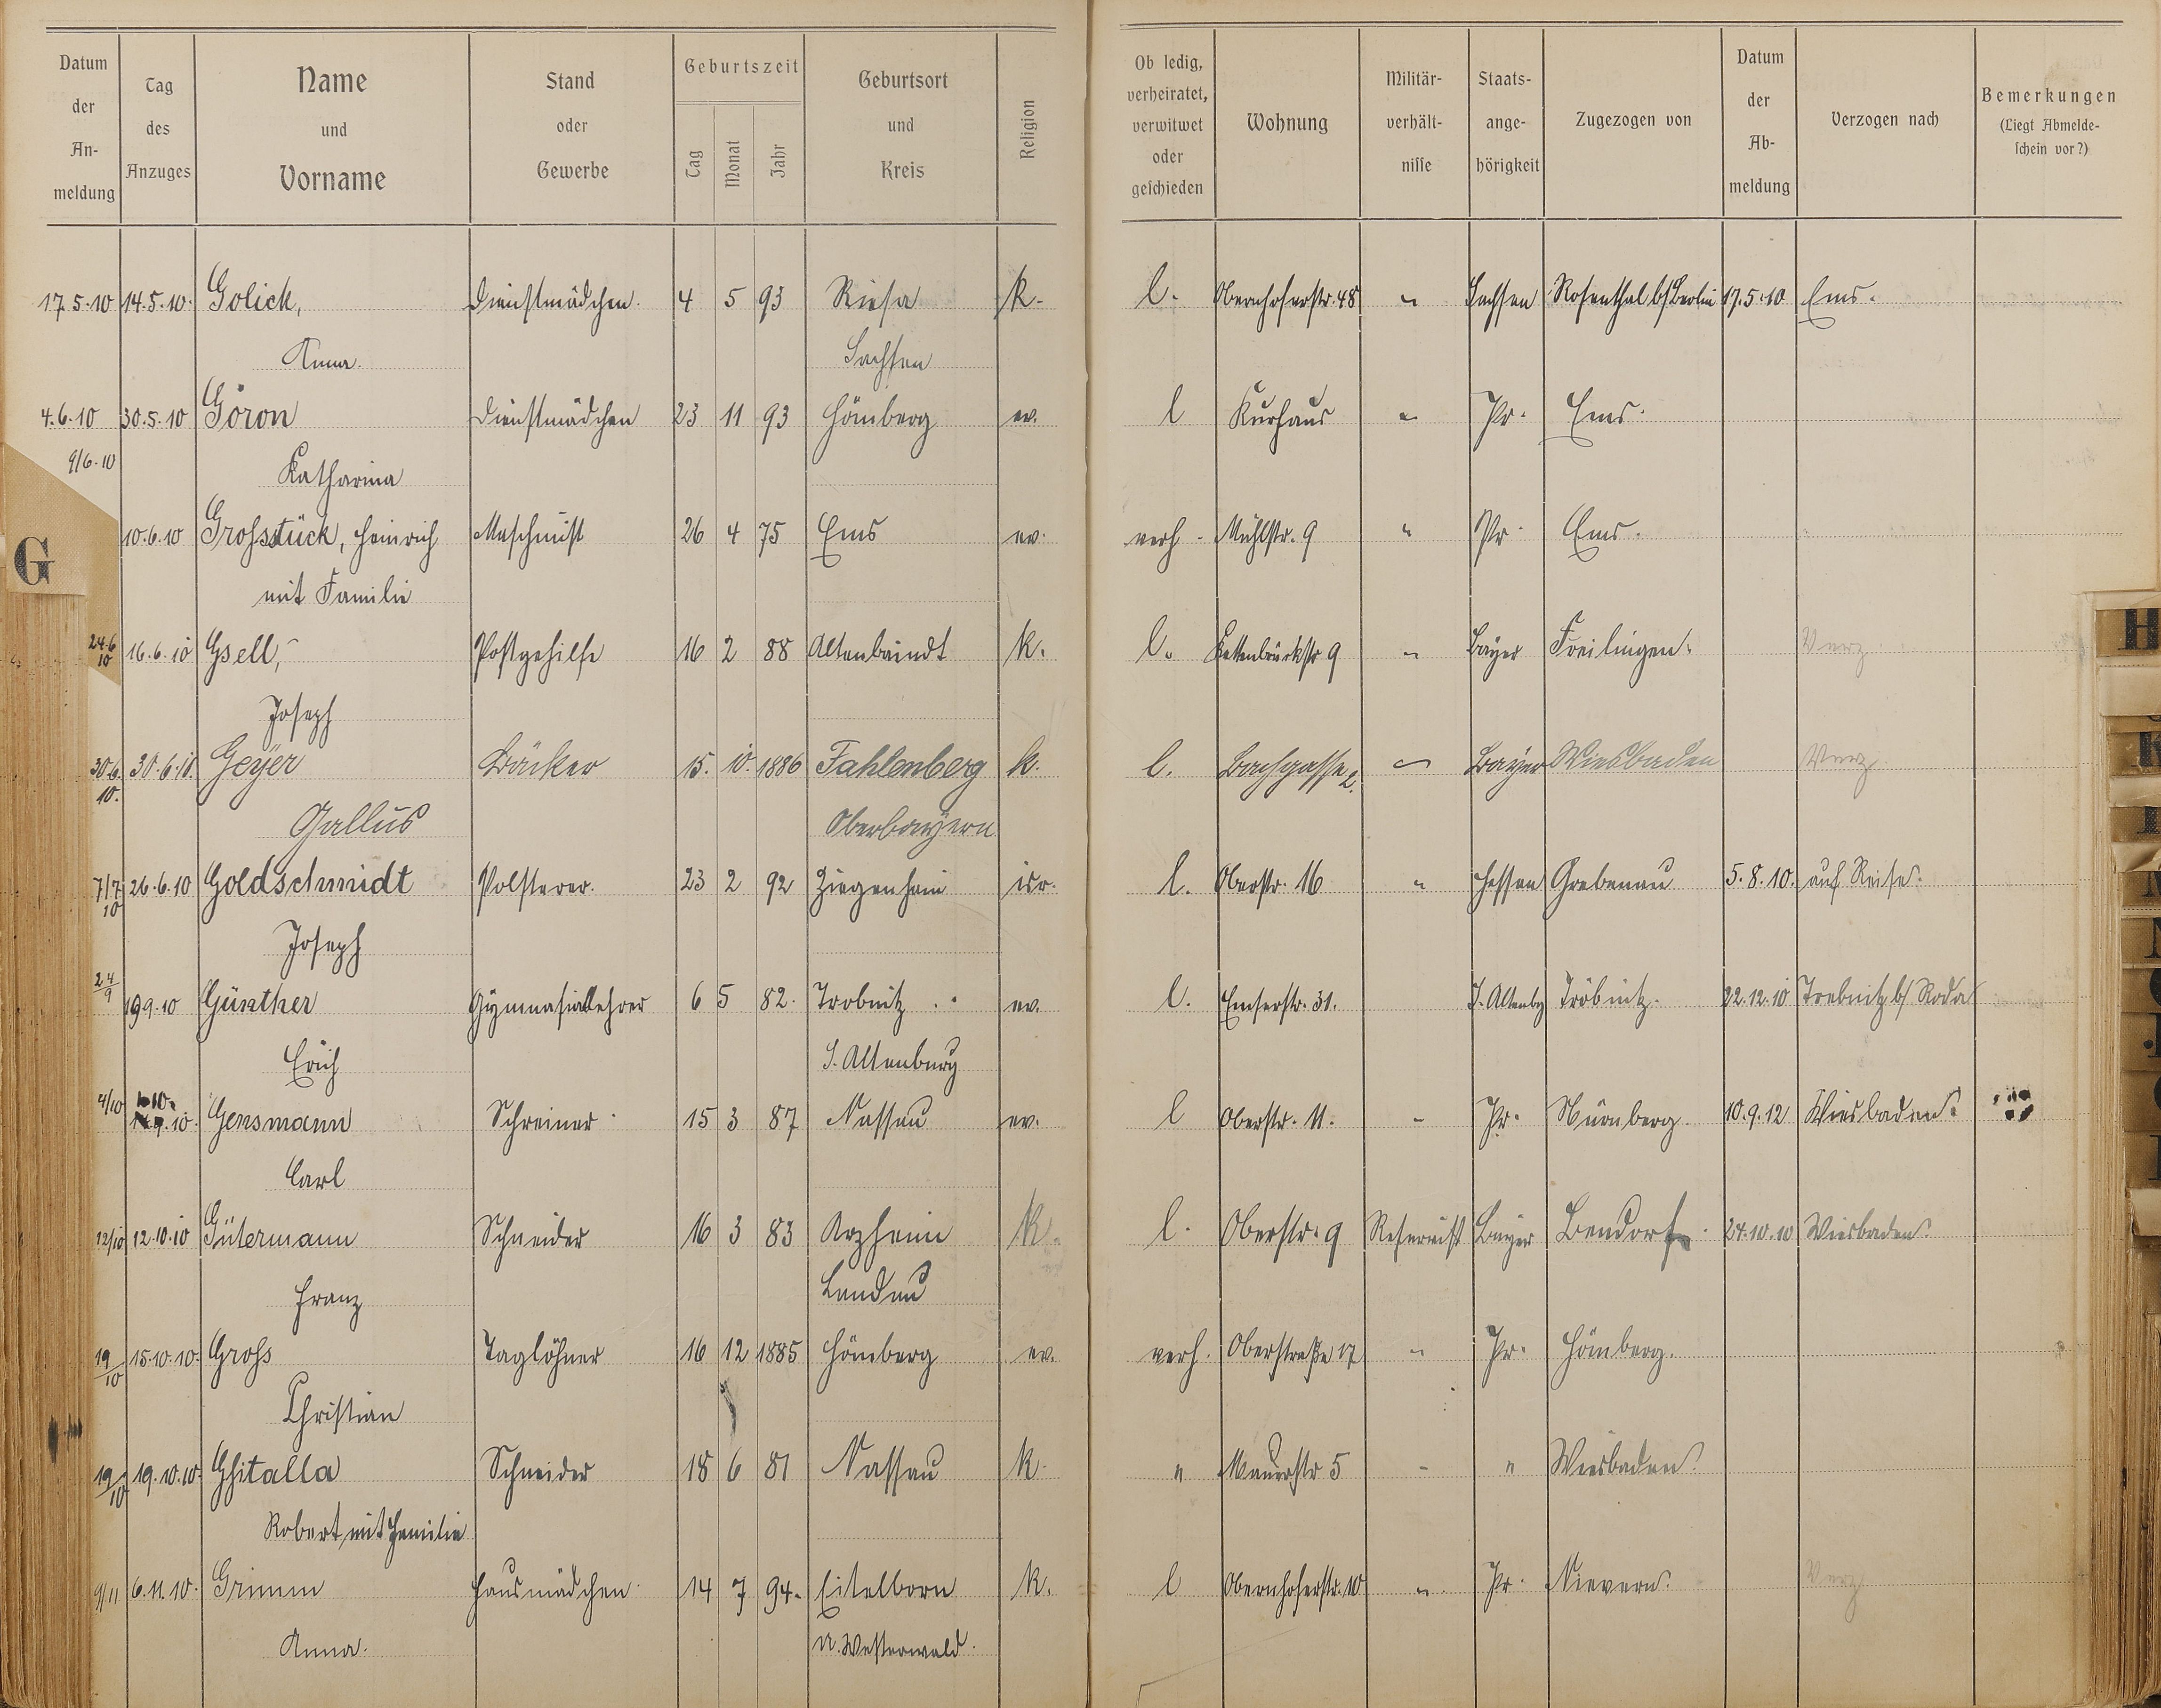 Datum der Anmeldung | Tag des Anzuges | Name und Vorname | Stand oder Gewerbe | Geburtszeit Tag Monat Jahr | Geburtsort und Kreis | Religion | Ob ledig, verheiratet, verwitwet oder geschieden | Wohnung | Militär-verhält-nisse | Staats-ange-hörigkeit | Zugezogen von | Datum der Ab-meldung | Verzogen nach | Bemerkungen (Liegt Abmelde-schein vor?)
17.5.10 14.5.10. Golick, Dienstmädchen. 4 5 93 Riesa k. l. Obernhoferstr. 48 " Sachsen Rosenthal b/Berlin 17.5.10 Ems.
Anna. Sachsen
4.6.10 30.5.10 Göron Dienstmädchen 23 11 93 Hömberg ev. l Kurhaus " Pr. Ems.
9/6.10 Katharina
10.6.10 Grossstück, Heinrich Maschinist 26 4 75 Ems ev. verh. Mühlstr. 9 " Pr. Ems.
mit Familie
G
24.6 10 16.6.10 Gsell, Postgehilfe 16 2 88 Altenbaindt k. l. Kettenbrückstr 9 " Bayer Freilingen. Verz.
Joseph
30.6. 10. 30.6.10. Geyer Bäcker 15. 10. 1886 Fahlenberg k. l. Bachgasse 2. " Bayer Wiesbaden Verz
Gallus Oberbayern
7/7 10 26.6.10 Goldschmidt Polsterer. 23 2 92 Ziegenhain isr. l. Oberstr. 16 " Hessen Grebenau 5.8.10. auf Reise.
Joseph
24 9 19.9.10 Günther Gymnasiallehrer 6 5 82. Trobnitz ev. l. Emserstr. 31. S. Altenbg Tröbnitz. 22.12.10 Trebnitz b/ Roda
Erich S. Altenburg
4/10 1.10. 9.10. Gensmann Schreiner 15 3 87 Nassau ev. l Oberstr. 11. - Pr. Nürnberg. 10.9.12 Wiesbaden.
Carl
12/10 12.10.10 Gütermann Schneider 16 3 83 Arzheim k. l. Oberstr. 9 Reservist Bayer Bendorf 24.10.10 Wiesbaden.
Franz Landau
19/10 15.10.10. Gross Taglöhner 16 12 1885 Hömberg ev. verh. Oberstraße 17 " Pr. Hömberg.
Christian
19/10 19.10.10. Ghitalla Schneider 18 6 81 Nassau k. " Mauerstr 5 - " Wiesbaden.
Robert mit Familie
9/11 6.11.10. Grimm Hausmädchen 14 7 94. Eitelborn k. l Obernhoferstr. 10 " Pr. Nievern. Verz
Anna. U. Westerwald.
H
K